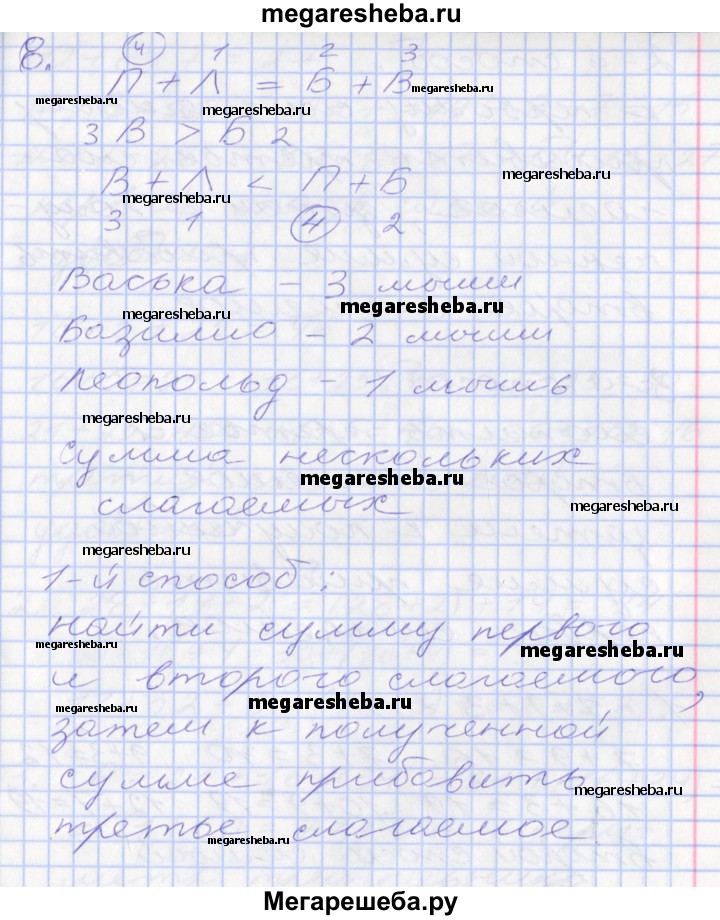 megaresheba.ru
8. 4 1 2 3
П + Л = Б + В megaresheba.ru
megaresheba.ru
megaresheba.ru
3 В > Б 2
megaresheba.ru
megaresheba.ru
В + Л < П + Б
megaresheba.ru
3 1 4 2
Васька – 3 мыши
megaresheba.ru
megaresheba.ru
Базилио – 2 мыши
megaresheba.ru
Леопольд – 1 мышь
megaresheba.ru
сумма нескольких
megaresheba.ru
слагаемых
megaresheba.ru
megaresheba.ru
1-й способ:
найти сумму первого
megaresheba.ru
megaresheba.ru
и второго слагаемого,
megaresheba.ru
megaresheba.ru
затем к полученной
сумме прибавить
megaresheba.ru
третье слагаемое.
megaresheba.ru
Мегарешеба.ру